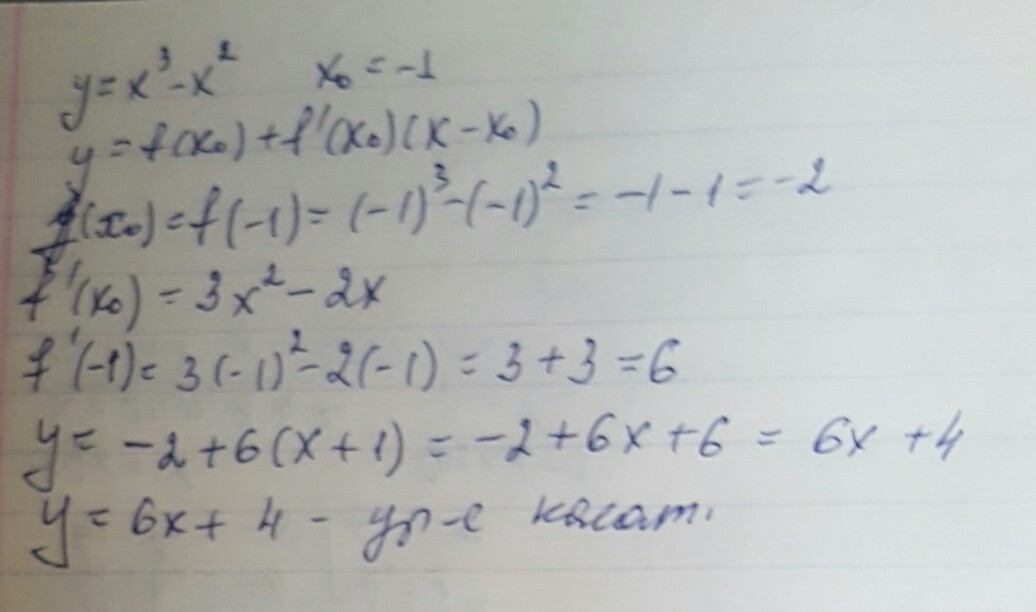 y = x³ - x² x₀ = -1
y = f(x₀) + f'(x₀)(x - x₀)
f(x₀) = f(-1) = (-1)³ - (-1)² = -1 - 1 = -2
f'(x₀) = 3x² - 2x
f'(-1) = 3(-1)² - 2(-1) = 3 + 3 = 6
y = -2 + 6(x + 1) = -2 + 6x + 6 = 6x + 4
y = 6x + 4 - ур-е касат.